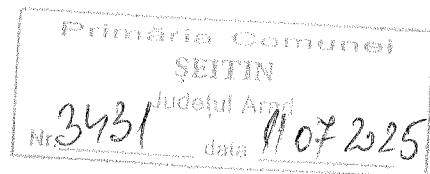 Primăria Comunei
ŞEITIN
Judeţul Arad
Nr. 3431 data 11 07 2025